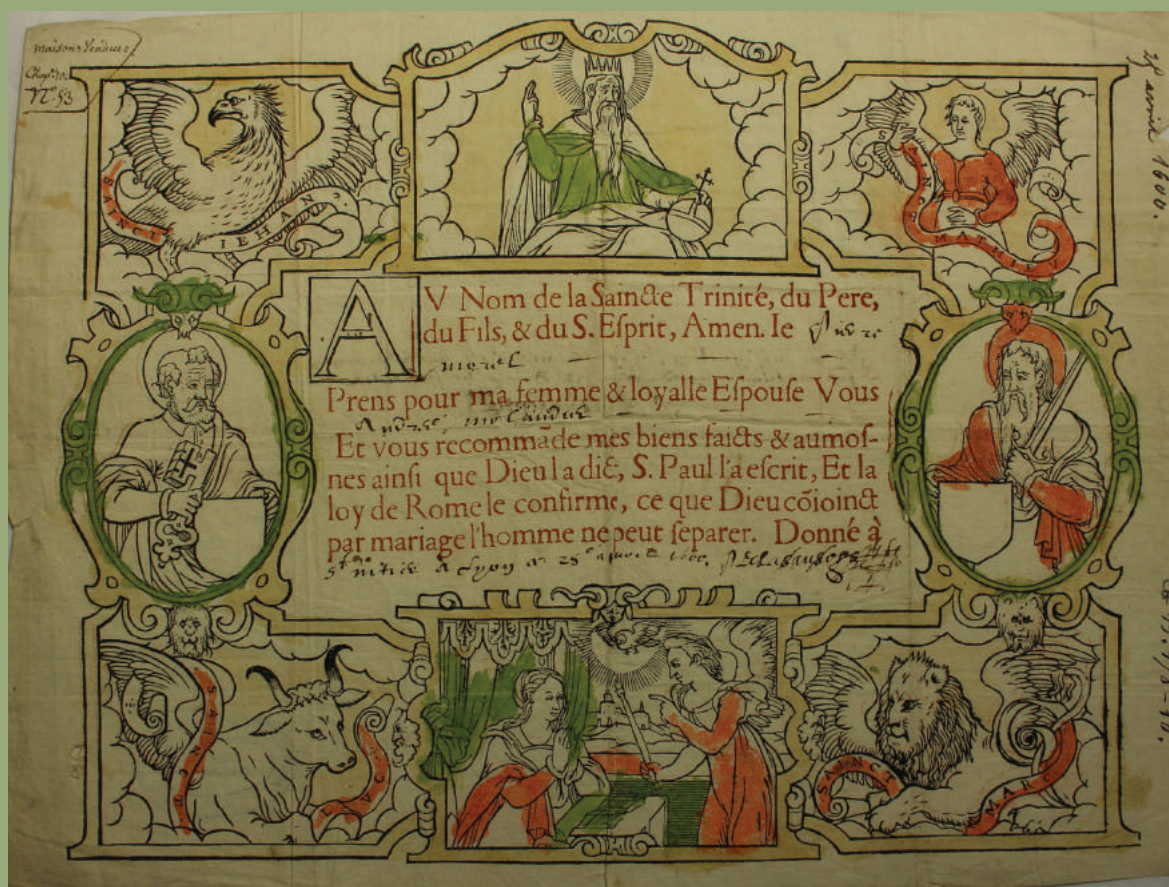 maisons Vendues
Chap. 10.
N° 53
25 avril 1600.
SAINCT IEHAN
MATHIEV
AV Nom de la Saincte Trinité, du Pere,
du Fils, & du S. Esprit, Amen. Ie
morel
Prens pour ma femme & loyalle Espouse Vous
Et vous recommãde mes biens faicts & aumos-
nes ainsi que Dieu la dict, S. Paul l'a escrit, Et la
loy de Rome le confirme, ce que Dieu cõioinct
par mariage l'homme ne peut separer. Donné à
a Lyon 1600
SAINCT
SAINCT MARC